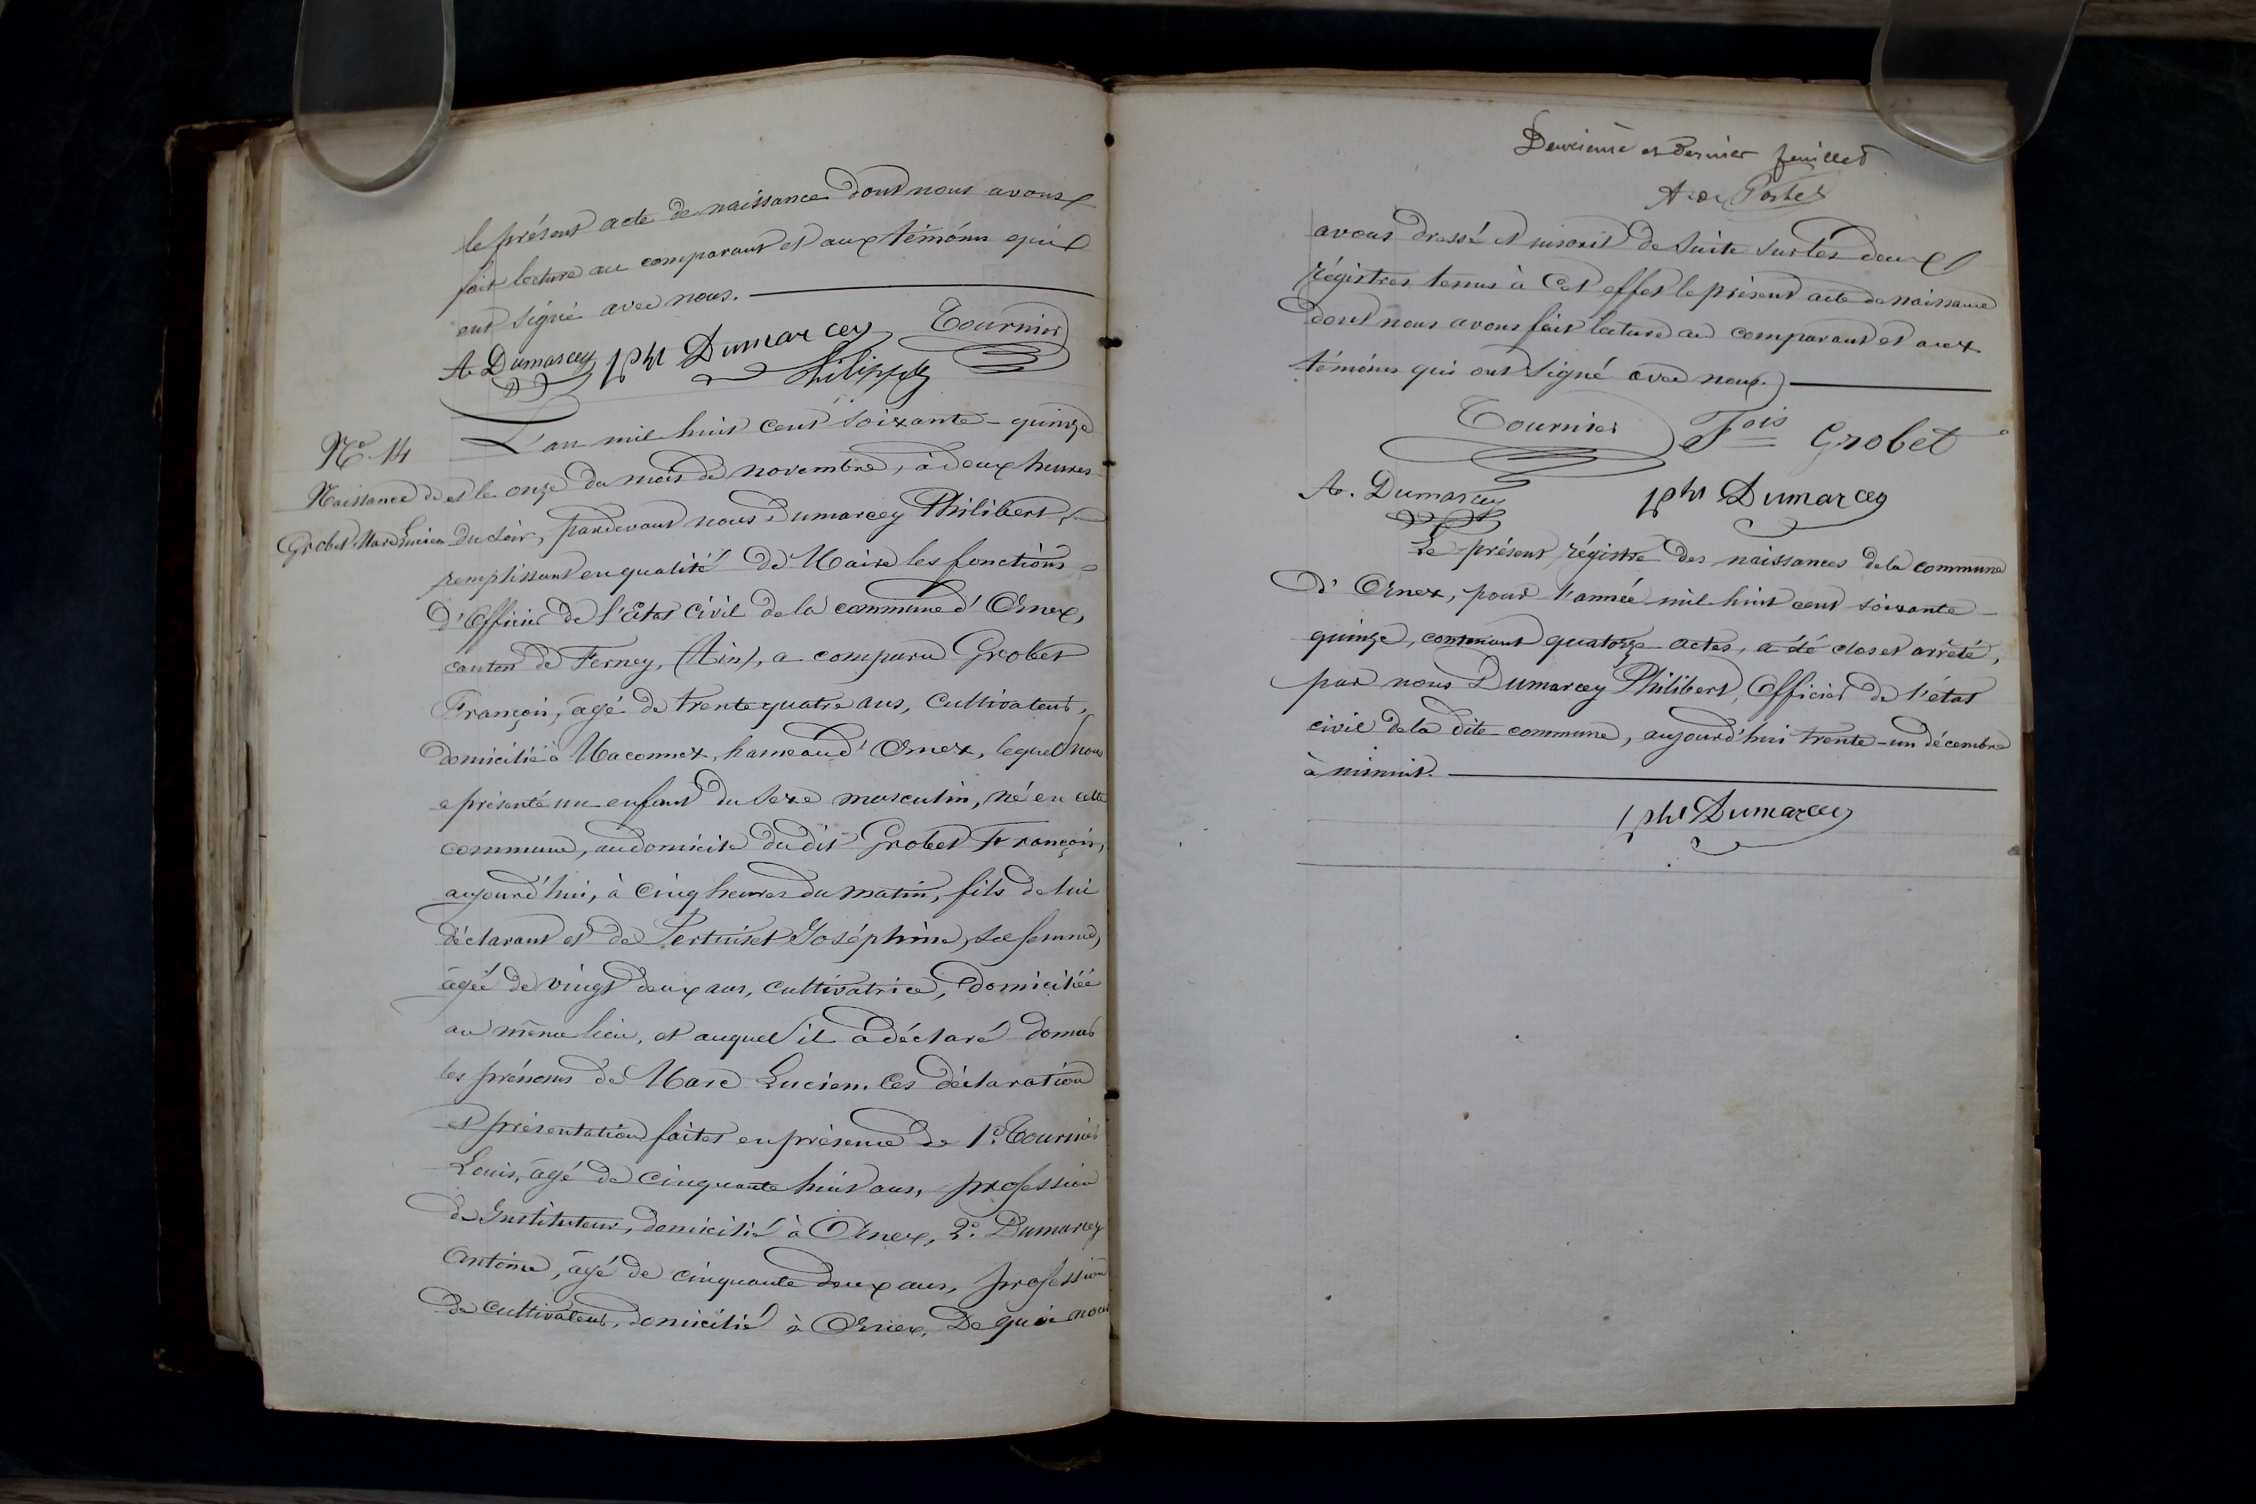 le présent acte de naissance dont nous avons
fait lecture au comparant et aux témóins qui
ont signé avec nous.
A Dumarcey Pht Dumarcey Tournier
Philippe
N° 14
Naissance de
Grobet Marc Lucien
L'an mil huit cent soixante-quinze
et le onze du mois de novembre, à deux heures
du soir, pardevant nous Dumarcey Philibert,
remplissant en qualité de Maire les fonctions
d'Officier de l'Etat Civil de la commune d'Ornex,
canton de Ferney, (Ain), a comparu Grobet
François, âgé de trente quatre ans, cultivateur,
domicilié à Maconnex, hameau d'Ornex, lequel nous
a présenté un enfant du sexe masculin, né en cette
commune, au domicile du dit Grobet François,
aujourd'hui, à cinq heures du matin, fils de lui
déclarant et de Pertuiset Joséphine, sa femme,
âgée de vingt deux ans, cultivatrice, domiciliée
au même lieu, et auquel il a déclaré donner
les prénoms de Marc Lucien. Ces déclaration
et présentation faites en présence de 1° Tournier
Louis, âgé de cinquante huit ans, profession
de Instituteur, domicilié à Ornex, 2° Dumarcey
Antoine, âgé de cinquante deux ans, profession
de cultivateur, domicilié à Ornex. De quoi nous
Deuxième et dernier feuillet
avons dressé et inscrit de suite sur les deux
régistres tenus à cet effet le présent acte de naissance
dont nous avons fait lecture au comparant et aux
témóins qui ont signé avec nous.
Tournier Fois Grobet
A. Dumarcey Pht Dumarcey
Le présent régistre des naissances de la commune
d'Ornex, pour l'année mil huit cent soixante-
quinze, contenant quatorze actes, a été clos et arrêté,
par nous Dumarcey Philibert, Officier de l'état
civil de la dite commune, aujourd'hui trente-un décembre
à minuit.
Pht Dumarcey